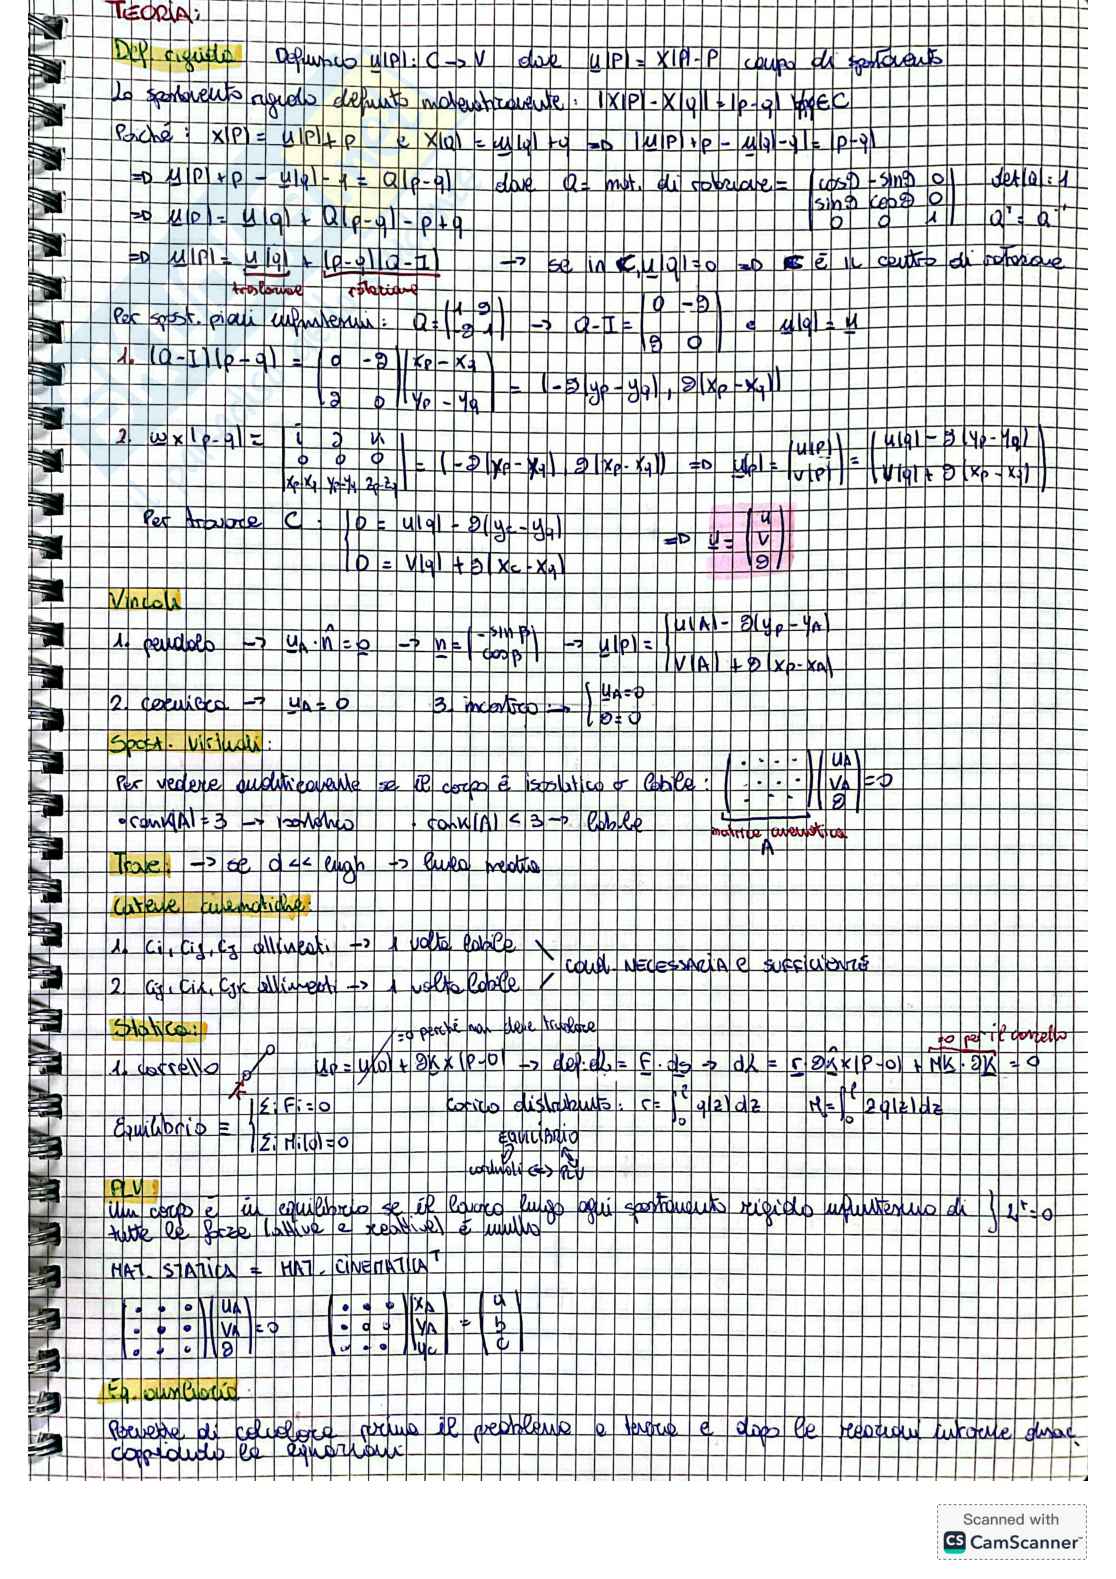 TEORIA:
Def. rigido Definisco u(P): C → V dove u(P) = X(P) - P campo di spostamento
Lo spostamento rigido definito matematicamente: |X(P) - X(q)| = |p-q| ∀p,q∈C
Perché: X(P) = u(P)+P e X(Q) = u(q)+q => |u(P)+p - u(q)-q| = |p-q|
=> u(P)+p - u(q)-q = Q(p-q) dove Q = mat. di rotazione = |cosϑ -sinϑ 0| det(Q)=1
|sinϑ cosϑ 0|
=> u(p) = u(q) + Q(p-q) - p+q |0 0 1| Qᵀ = Q⁻¹
=> u(P) = u(q) + (p-q)(Q-I) → se in C, u(q)=0 => C è il centro di rotazione
traslazione rotazione
Per spost. piani infinitesimi: Q = (1 ϑ -ϑ 1) → Q-I = |0 -ϑ ϑ 0| e u(q) = u
1. (Q-I)(p-q) = |0 -ϑ ϑ 0| |xp-xq yp-yq| = (-ϑ(yp-yq), ϑ(xp-xq))
2. ω×(p-q) = |i j k 0 0 0 xp-xq yp-yq zp-zq| = (-ϑ(xp-xq), ϑ(xp-xq)) => u(p) = (u(P) v(P)) = (u(q) - ϑ(yp-yq) v(q) + ϑ(xp-xq))
Per trovare C: {0 = u(q) - ϑ(yc-yq) => u = (u v ϑ)
0 = v(q) + ϑ(xc-xq)
Vincoli
1. pendolo → uA·n̂ = 0 → n = (-sinβ cosβ) → u(p) = {u(A) - ϑ(yp-yA)
v(A) + ϑ(xp-xA)
2. cerniera → uA = 0 3. incastro → {uA=0 ϑ=0
Spost. virtuali:
Per vedere analiticamente se il corpo è isostatico o labile: (. . . .)(uA vA ϑ) = 0
• rank(A) = 3 → isostatico • rank(A) < 3 → labile
matrice cinematica
A
Trave: → se d << lungh → linea media
Catene cinematiche:
1. Ci, Cij, Cj allineati → 1 volta labile
cond. NECESSARIA e SUFFICIENTE
2. Cij, Cik, Cjk allineati → 1 volta labile
Statica:
=0 perché non deve traslare
=0 per il carrello
1. carrello up = u(0) + ϑk×(P-O) → def: dL = F·ds → dL = r·ϑk×(P-O) + Mk·ϑk = 0
Equilibrio ≡ {Σi Fi = 0 carico distribuito: r = ∫₀ˡ q(z)dz M = ∫₀ˡ zq(z)dz
Σi Mi(o) = 0
EQUILIBRIO
cardinali <=> PLV
PLV:
Un corpo è in equilibrio se il lavoro lungo ogni spostamento rigido infinitesimo di } Lᵛ=0
tutte le forze (attive e reattive) è nullo
MAT. STATICA = MAT. CINEMATICAᵀ
(. . .)(uA vA ϑ) = 0 (. . .)(xA yA yc) = (a b c)
Eq. ausiliaria
Permette di calcolare prima il problema a terra e dopo le reazioni interne disac.
coppiando le equazioni
Scanned with
CS CamScanner